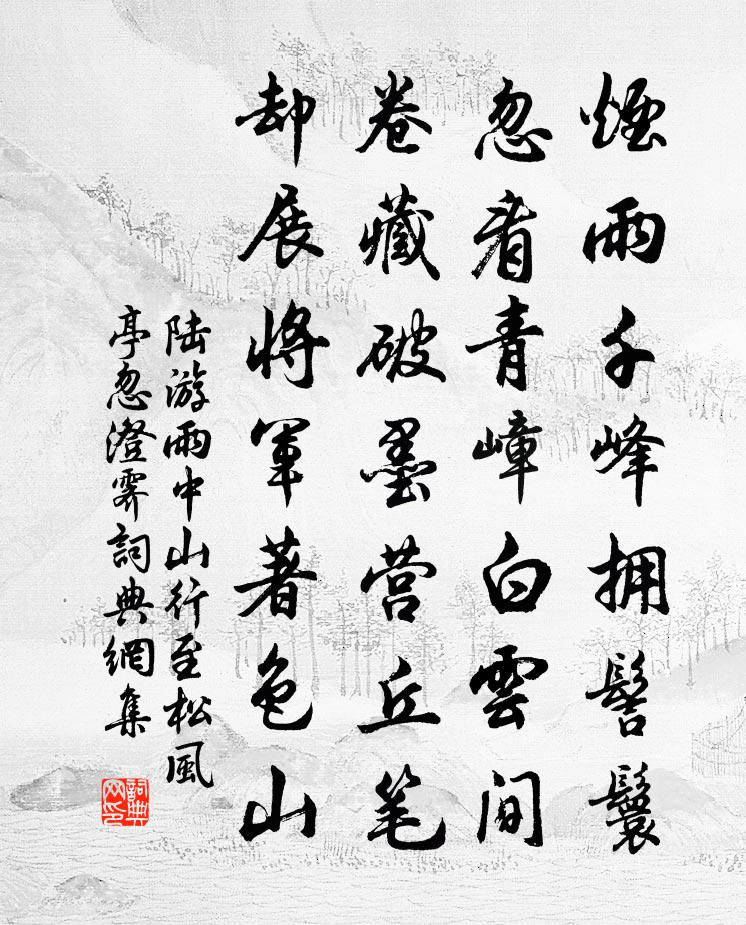 煙雨千峰拥髻鬟
忽看青嶂白雲間
卷藏破墨营丘笔
却展將軍著色山
陆游雨中山行至松風
亭忽澄霁詞典網集
詞典网印